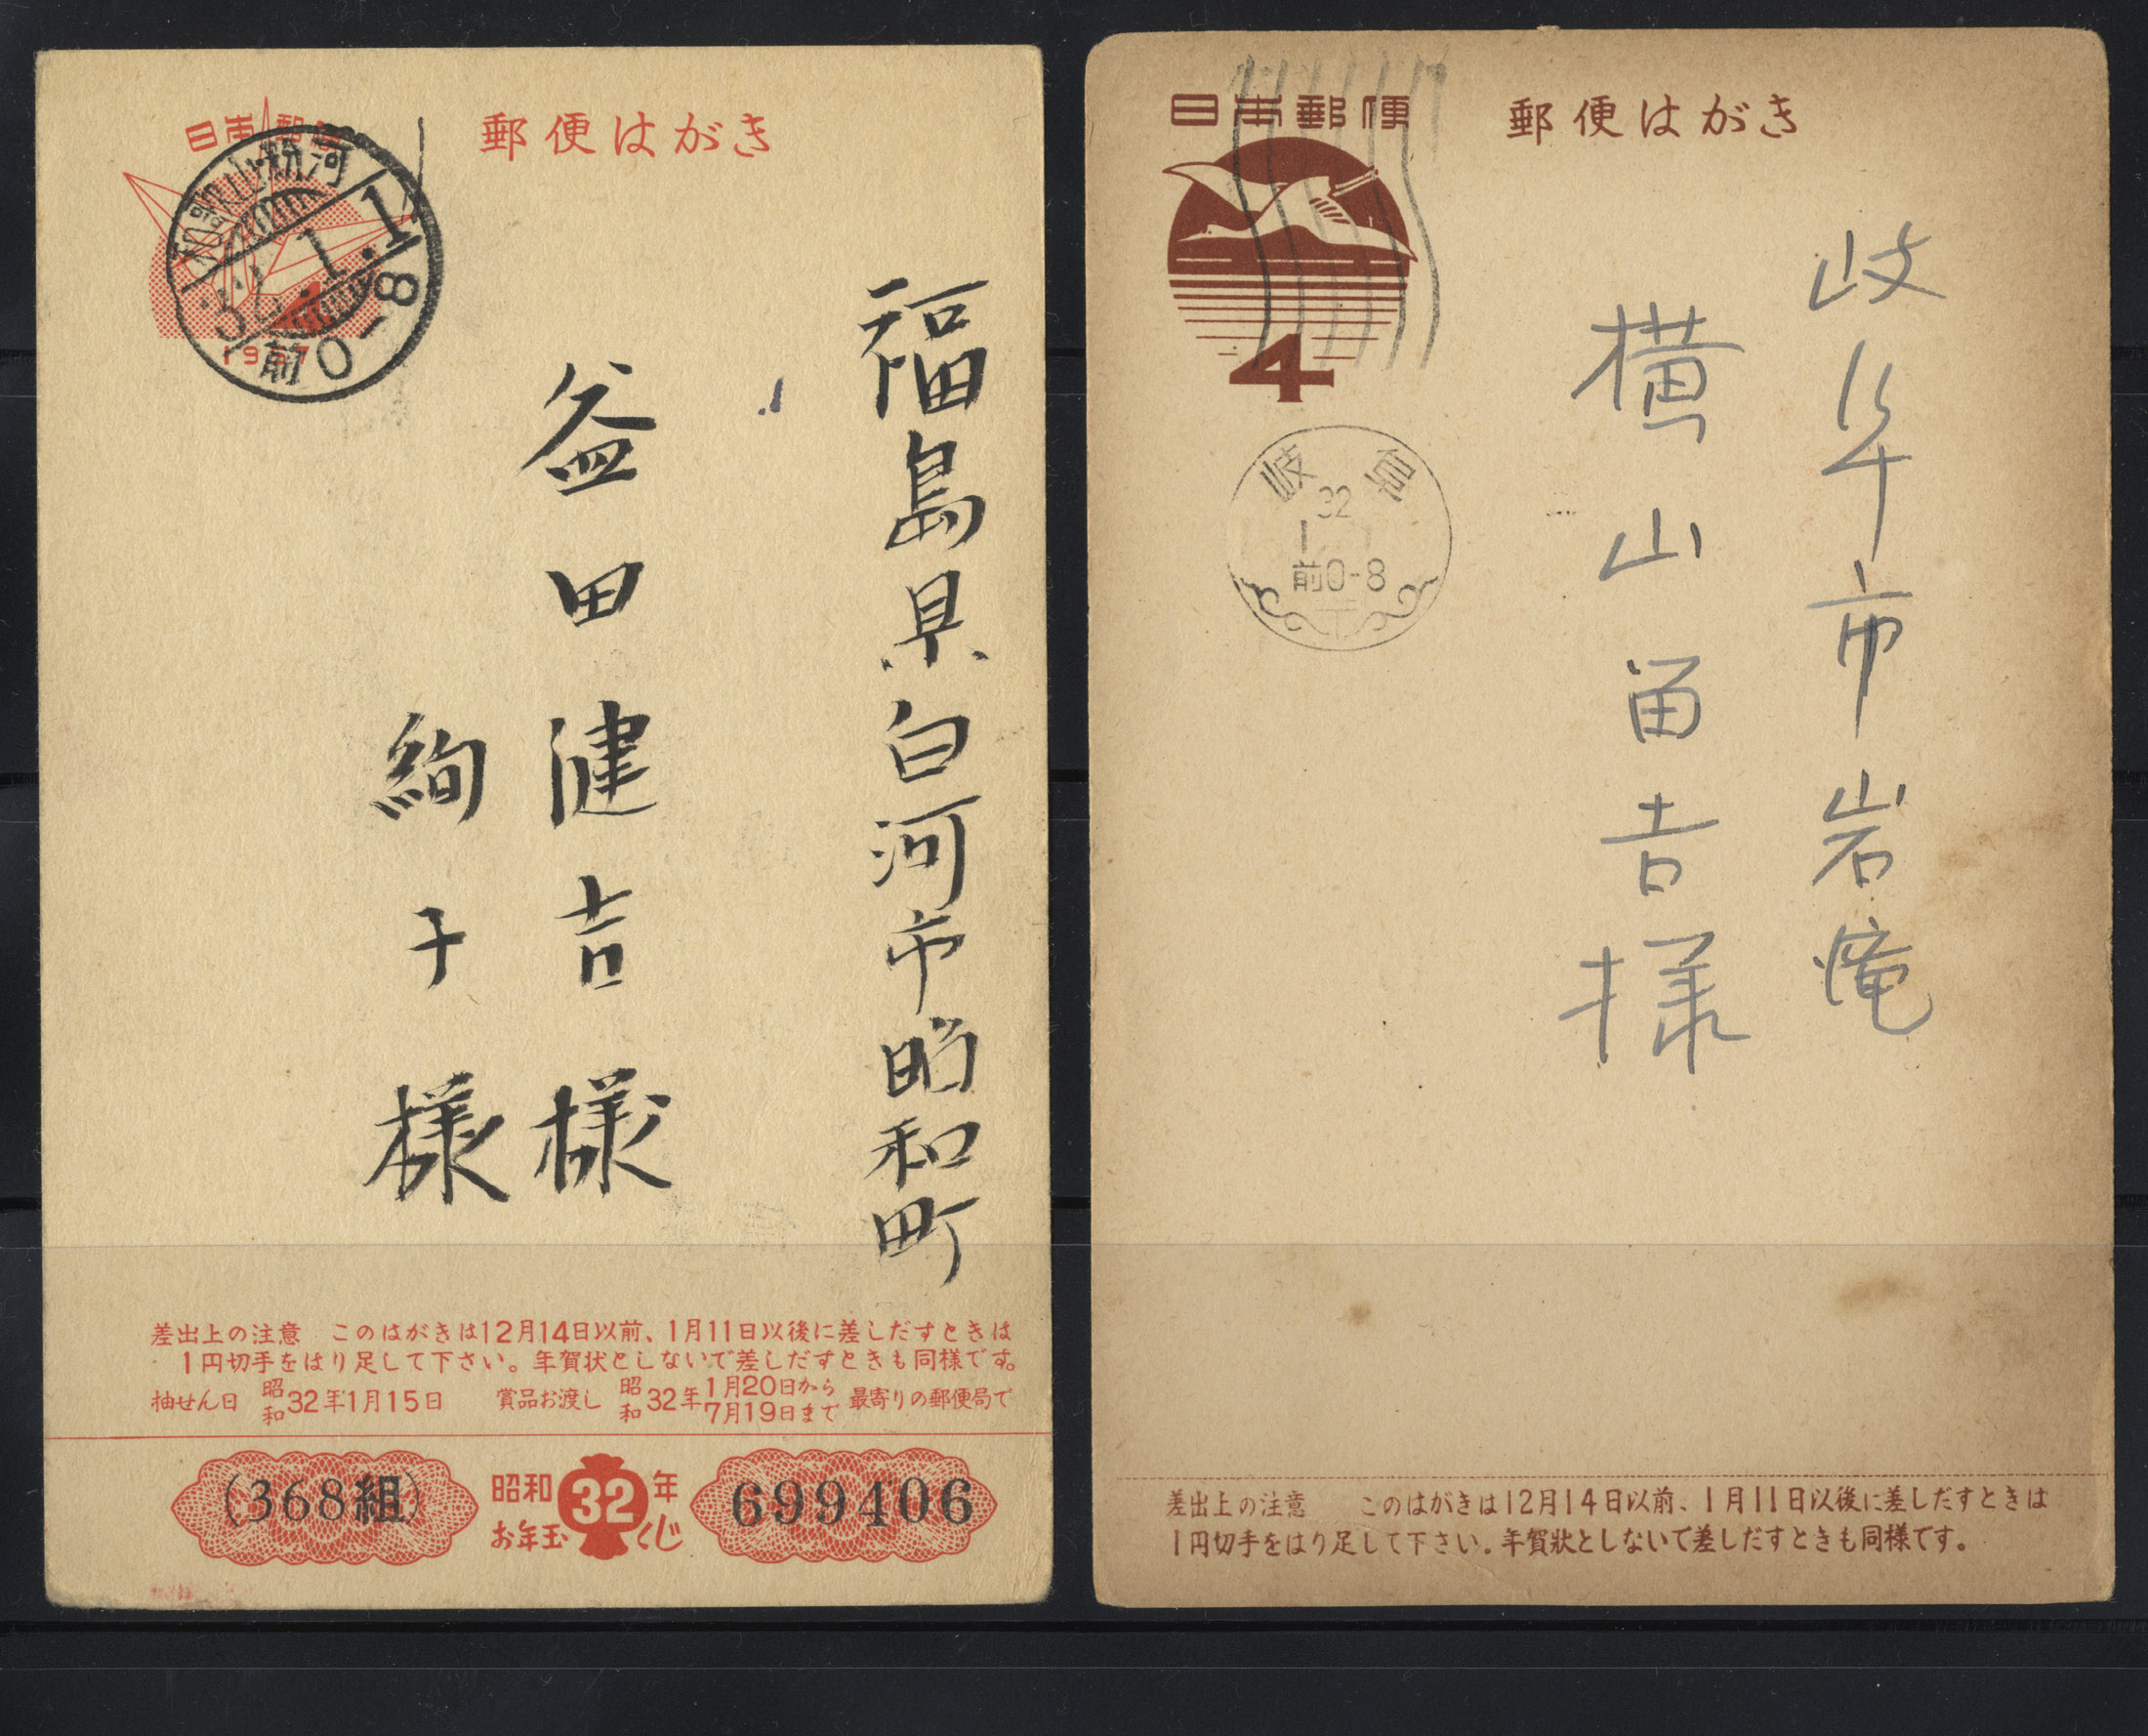 日本郵便
郵便はがき
和歌山・粉河
32.1.1
前0-8
1957
福島県白河市昭和町
益田健吉様
絢子様
差出上の注意 このはがきは12月14日以前、1月11日以後に差しだすときは
1円切手をはり足して下さい。年賀状としないで差しだすときも同様です。
抽せん日 昭和32年1月15日 賞品お渡し 昭和32年1月20日から7月19日まで 最寄りの郵便局で
(368組)
昭和32年
お年玉くじ
699406
日本郵便
郵便はがき
4
32
1
前0-8
岐阜市岩滝
横山留吉様
差出上の注意 このはがきは12月14日以前、1月11日以後に差しだすときは
1円切手をはり足して下さい。年賀狀としないで差しだすときも同様です。